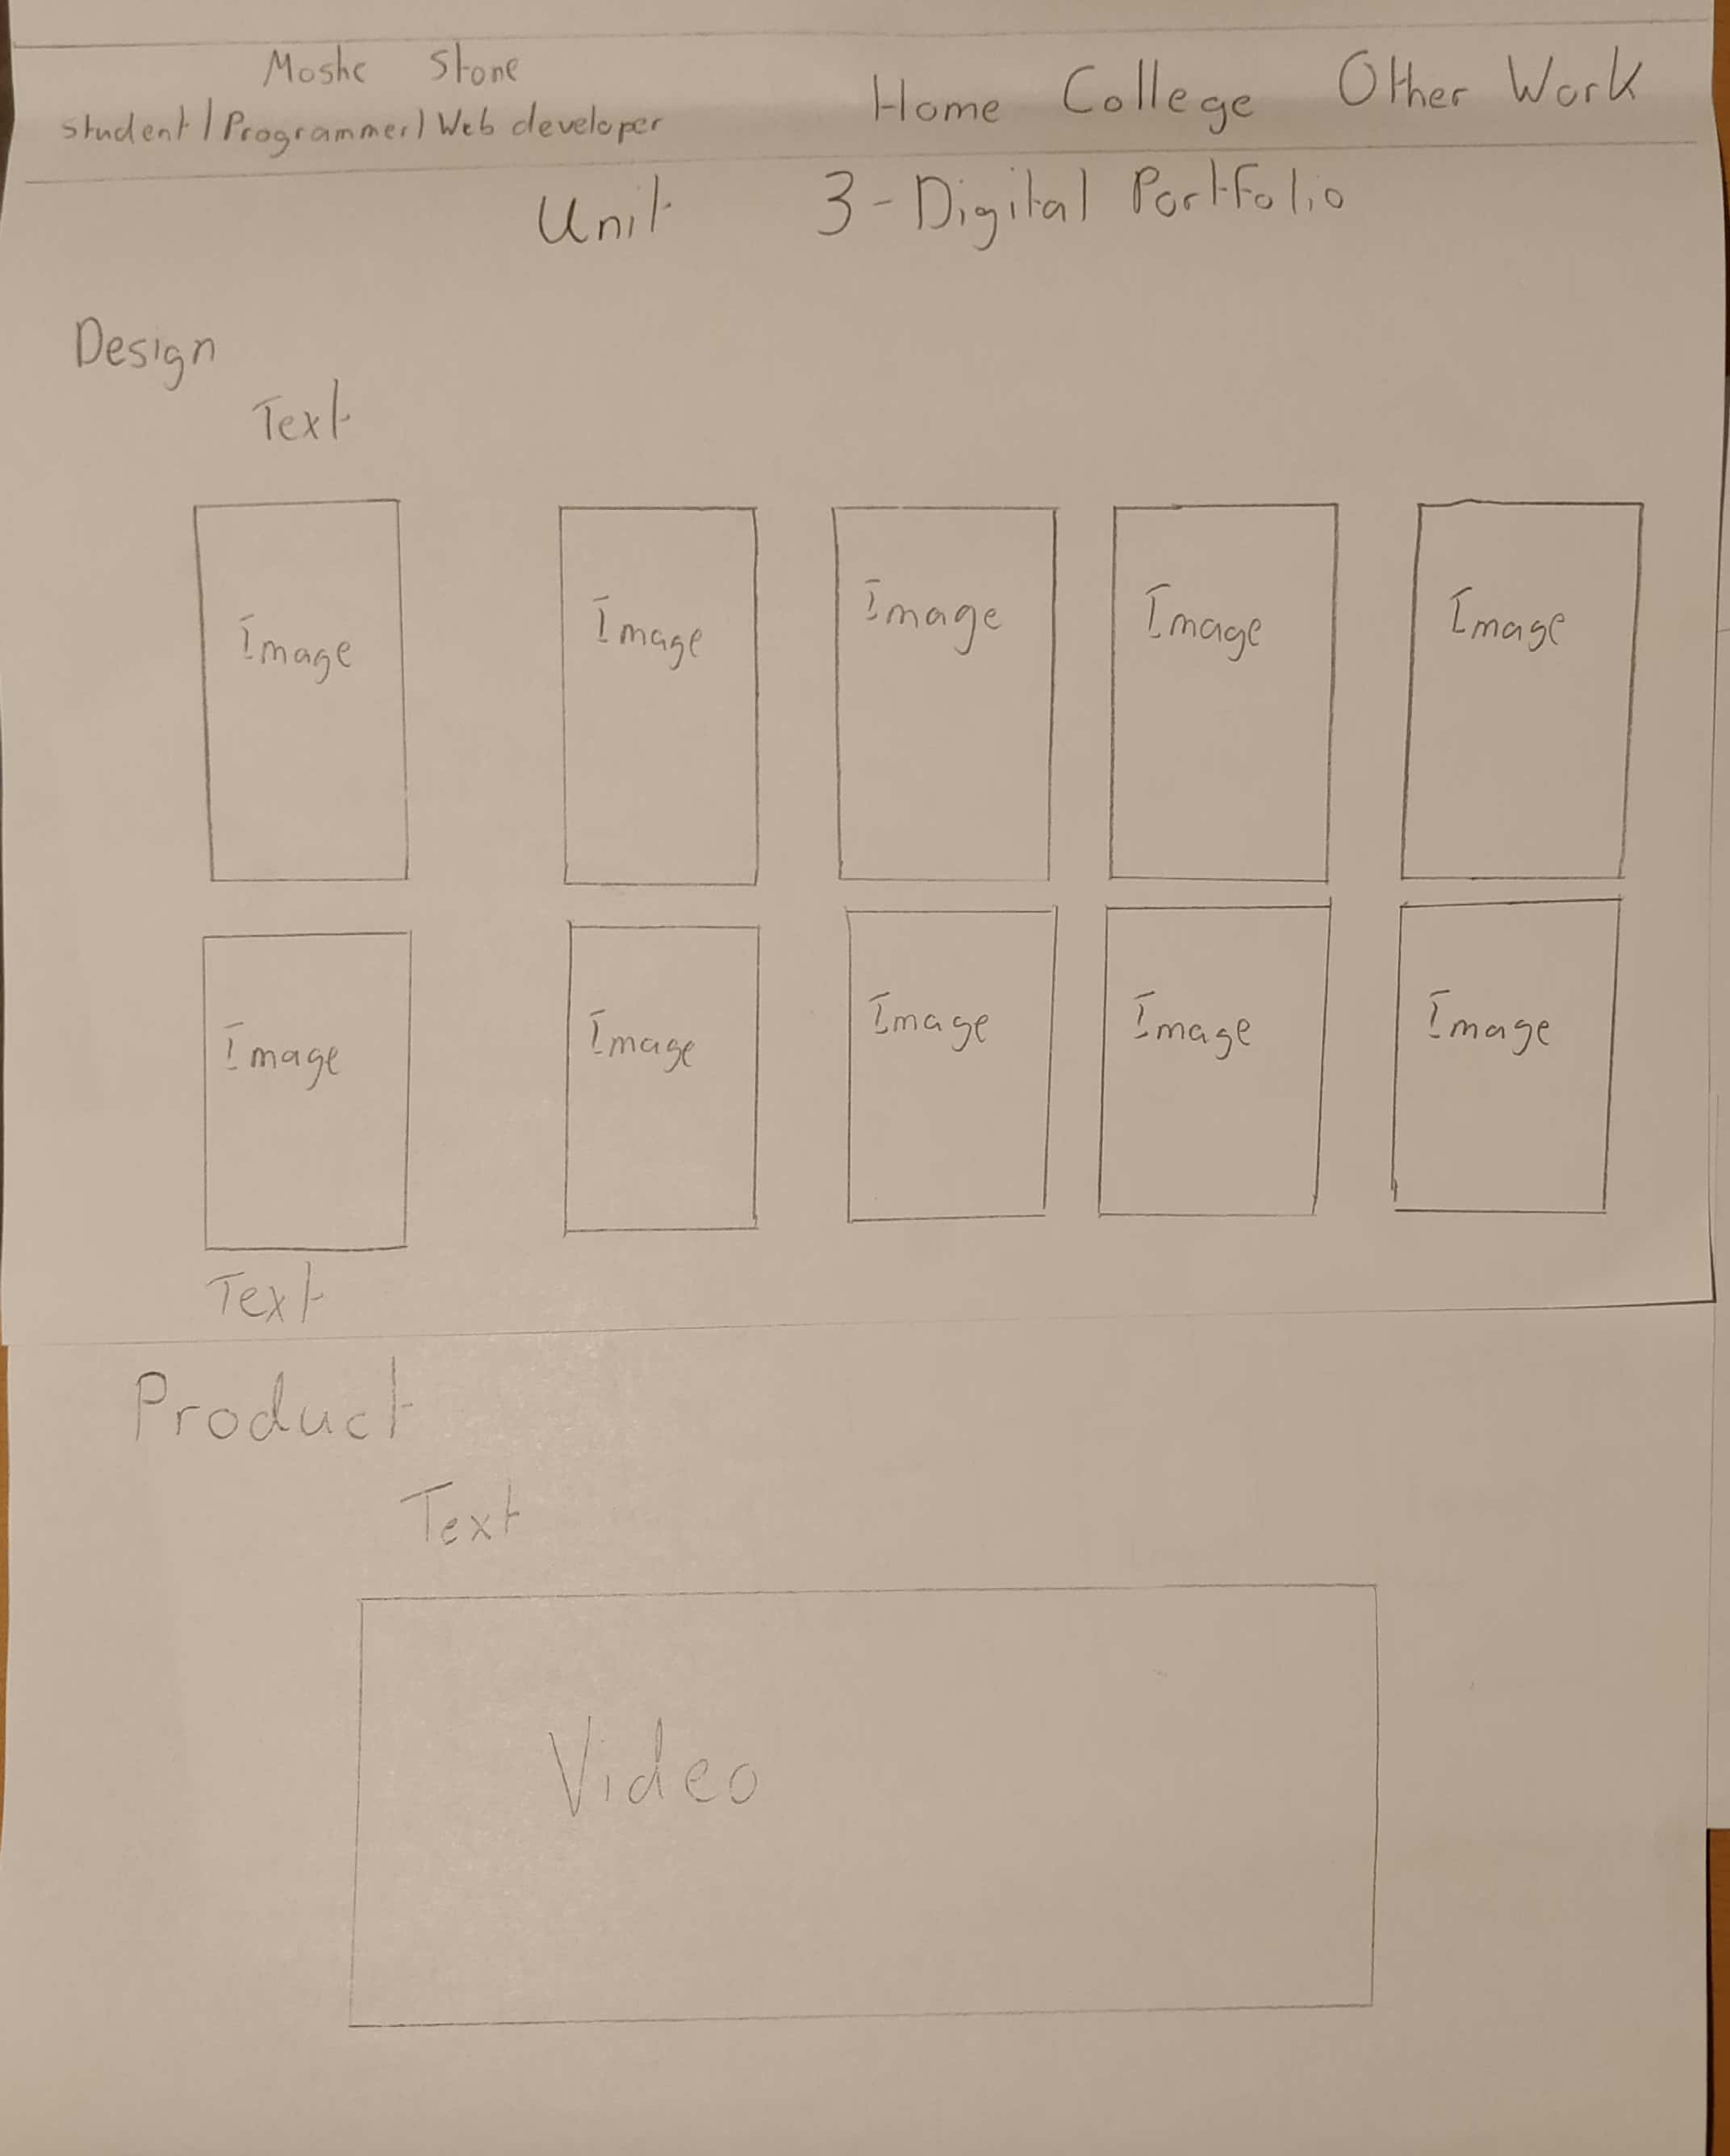 Moshe Stone
Student | Programmer | Web developer
Home College Other Work
Unit 3 - Digital Portfolio
Design
Text
Image Image Image Image Image
Image Image Image Image Image
Text
Product
Text
Video